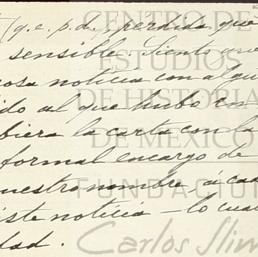 (q.e.p.d., perdida que
sensible. Siento que
osa noticia con algu
ido al que hubo con
biera la carta con la
formal encargo de
uestro nombre, á cad
ste noticia - lo cual
dad.
CENTRO
DE ESTUDIOS
DE HISTORIA
DE MEXICO
FUNDACIÓN
Carlos Slim